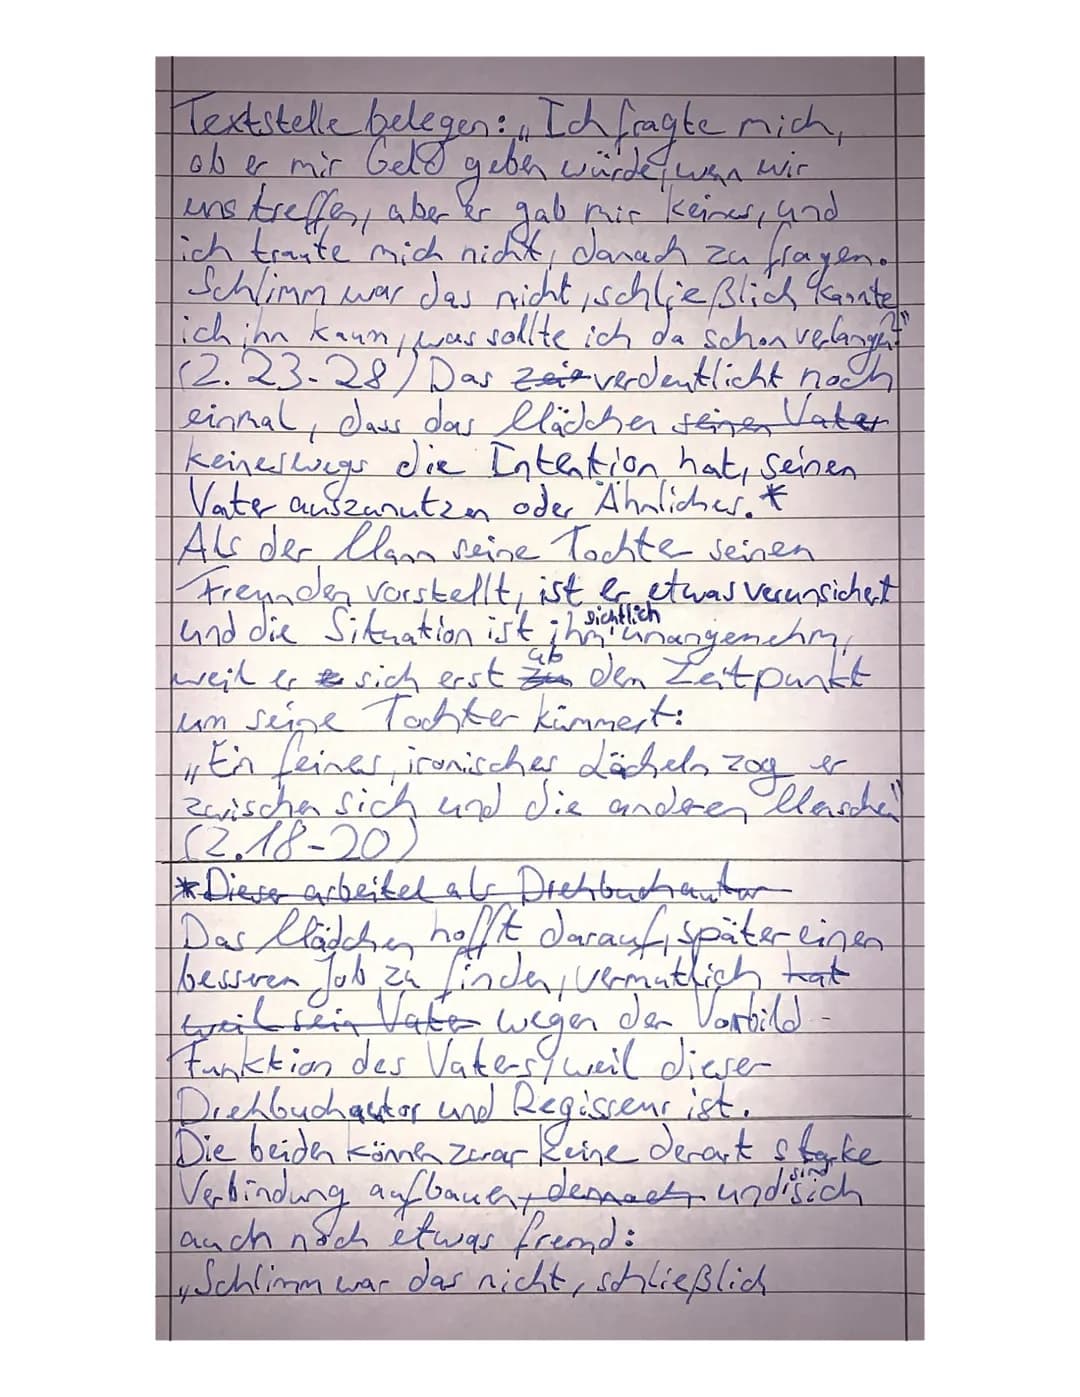 Textstelle belegen: „Ich fragte mich,
ob er mir Geld geben würde, wenn wir
uns treffen, aber er gab mir keines, und
ich traute mich nicht, danach zu fragen.
Schlimm war das nicht, schließlich kannte
ich ihn kaum, was sollte ich da schon verlangen?"
(Z. 23-28) Das verdeutlicht noch
einmal, dass das Mädchen seinen Vater
keineswegs die Intention hat, seinen
Vater auszunutzen oder Ähnliches.*
Als der Mann seine Tochter seinen
Freunden vorstellt, ist er etwas verunsichert
und die Situation ist ihm sichtlich unangenehm,
weil er sich erst ab den Zeitpunkt
um seine Tochter kümmert:
„Ein feines, ironisches Lächeln zog er
zwischen sich und die anderen Menschen"
(Z. 18-20)
*Dieser arbeitet als Drehbuchautor
Das Mädchen hofft darauf, später einen
besseren Job zu finden, vermutlich hat
weil sein Vater wegen der Vorbild-
funktion des Vaters, weil dieser
Drehbuchautor und Regisseur ist.
Die beiden können zwar keine derart starke
Verbindung aufbauen, dennoch und sind sich
auch noch etwas fremd:
„Schlimm war das nicht, schließlich